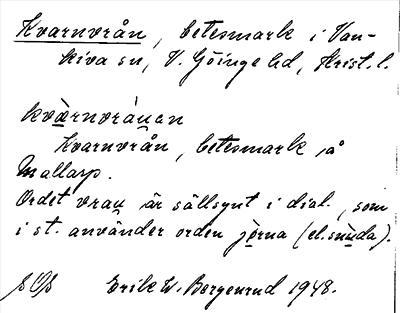 Kvarnvrån, betesmark i Van-
kiva sn, V. Göinge hd, Krist. l.
kvärnvråu̯an
Kvarnvrån, betesmark å
Mallarp.
Ordet vrau̯ är sällsynt i dial., som
i st. använder orden jörna (el. snuda).
Erik W. Bergenrud 1948.